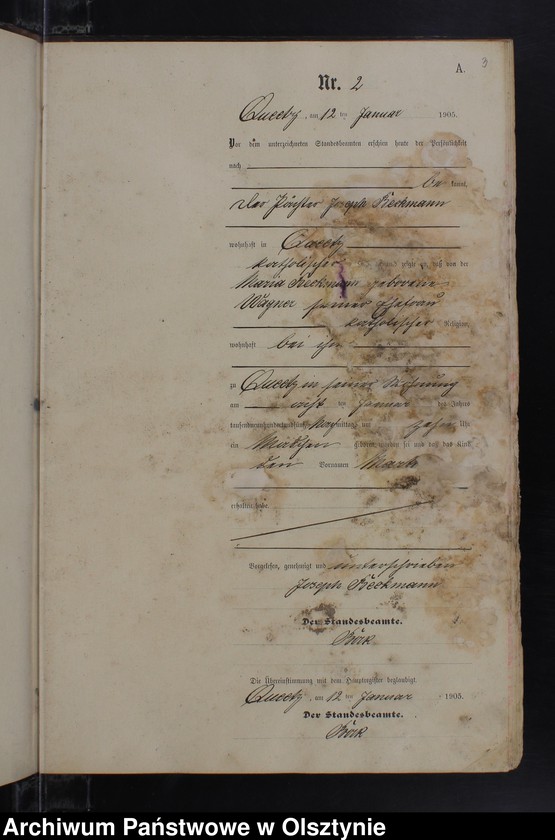 A. 3
Nr. 2
Queetz, am 12 ten Januar 1905.
Vor dem unterzeichneten Standesbeamten erschien heute der Persönlichkeit
nach
be kannt,
der Joseph Beckmann
wohnhaft in Queetz
katholischer Religion, und zeigte an, daß von der
Maria Beckmann geborene
Wagner seiner Ehefrau
katholischer Religion,
wohnhaft bei ihm
zu Queetz in seiner Wohnung
am acht ten Januar des Jahres
tausendneunhundertundfünf Nachmittags um zehn Uhr
ein Mädchen geboren worden sei und daß das Kind
den Vornamen Martha
erhalten habe.
Vorgelesen, genehmigt und unterschrieben
Joseph Beckmann
Der Standesbeamte.
Die Übereinstimmung mit dem Hauptregister beglaubigt
Queetz, am 12 ten Januar 1905.
Der Standesbeamte.
Archiwum Państwowe w Olsztynie